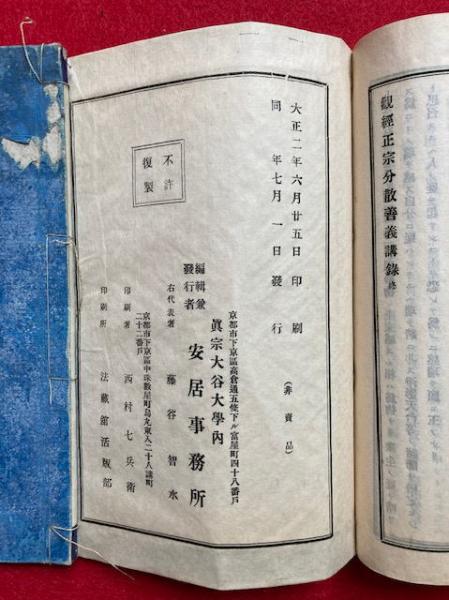 觀經正宗分散善義講錄 終
大正二年六月廿五日印刷
同 年七月一日發行
(非賣品)
不許
復製
京都市下京區高倉通五條下ル富屋町四十八番戶
眞宗大谷大學內
編輯兼
發行者
安居事務所
右代表者 藤谷智水
京都市下京區中珠數屋町烏丸東入二十八講町
二十二番戶
印刷者 西村七兵衛
印刷所 法藏館活版部